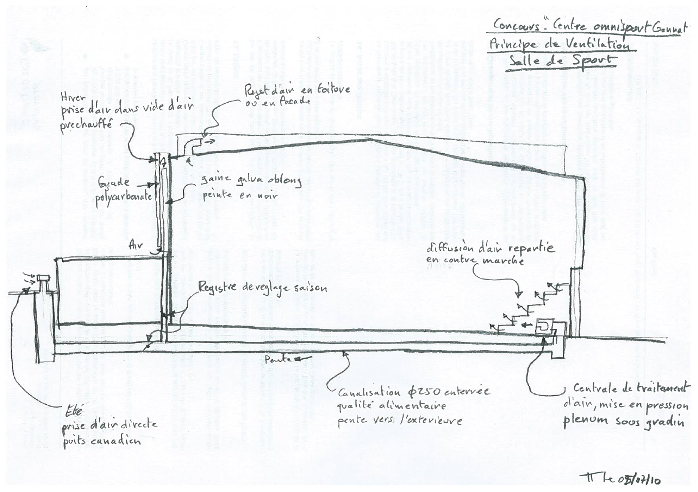 Concours "Centre omnisport Gannat
Principe de Ventilation
Salle de Sport
Rejet d'air en toiture
ou en facade
Hiver
prise d'air dans vide d'air
prechauffé
Façade
polycarbonate
gaine galva oblong
peinte en noir
Air
diffusion d'air repartie
en contre marche
Registre de reglage saison
Pente
Eté
prise d'air directe
puits canadien
Canalisation φ250 enterrée
qualité alimentaire
pente vers l'exterieure
Centrale de traitement
d'air, mise en pression
plenum sous gradin